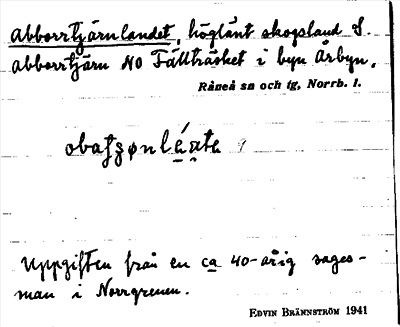 Abborrtjärnlandet, höglänt skogsland S.
Abborrtjärn NO Fällträsket i byn Årbyn,
Råneå sn och tg, Norrb. l.
Uppgiften från en ca 40-årig sages-
man i Norrgrenen.
EDVIN BRÄNNSTRÖM 1941